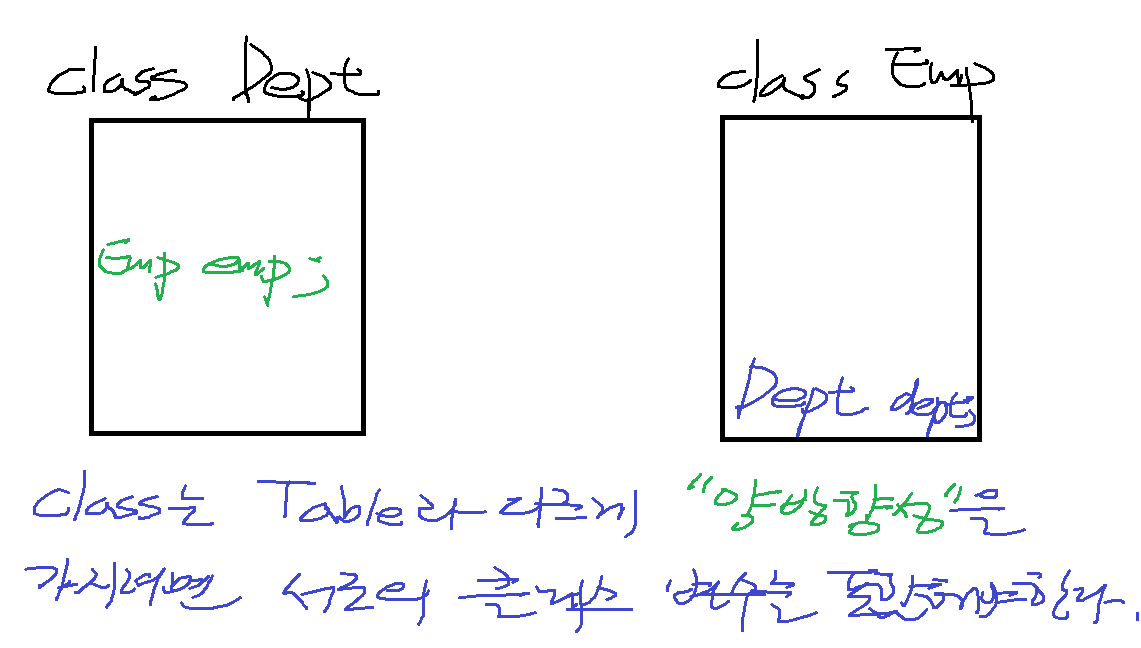 class Dept
class Emp
Emp emp;
Dept dept;
class는 Table과 다르게 "양방향성"은
가지려면 서로의 클래스 변수는 포함해야한다.